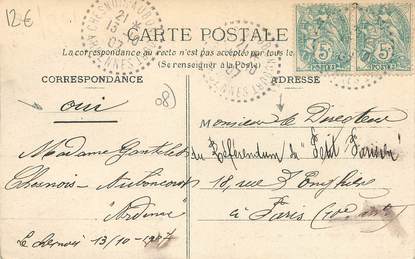 12€
CARTE POSTALE
La correspondance au recto n'est pas acceptée par tous les
(Se renseigner à la Poste)
CORRESPONDANCE
ADRESSE
oui
08)
Monsieur le Directeur
du Référendum du "Petit Parisien"
18, rue d'Enghien
à Paris (10e
Madame
Chesnois - Auboncourt
Ardennes
Le Chesnois 13/10 - 1907
5c 5c